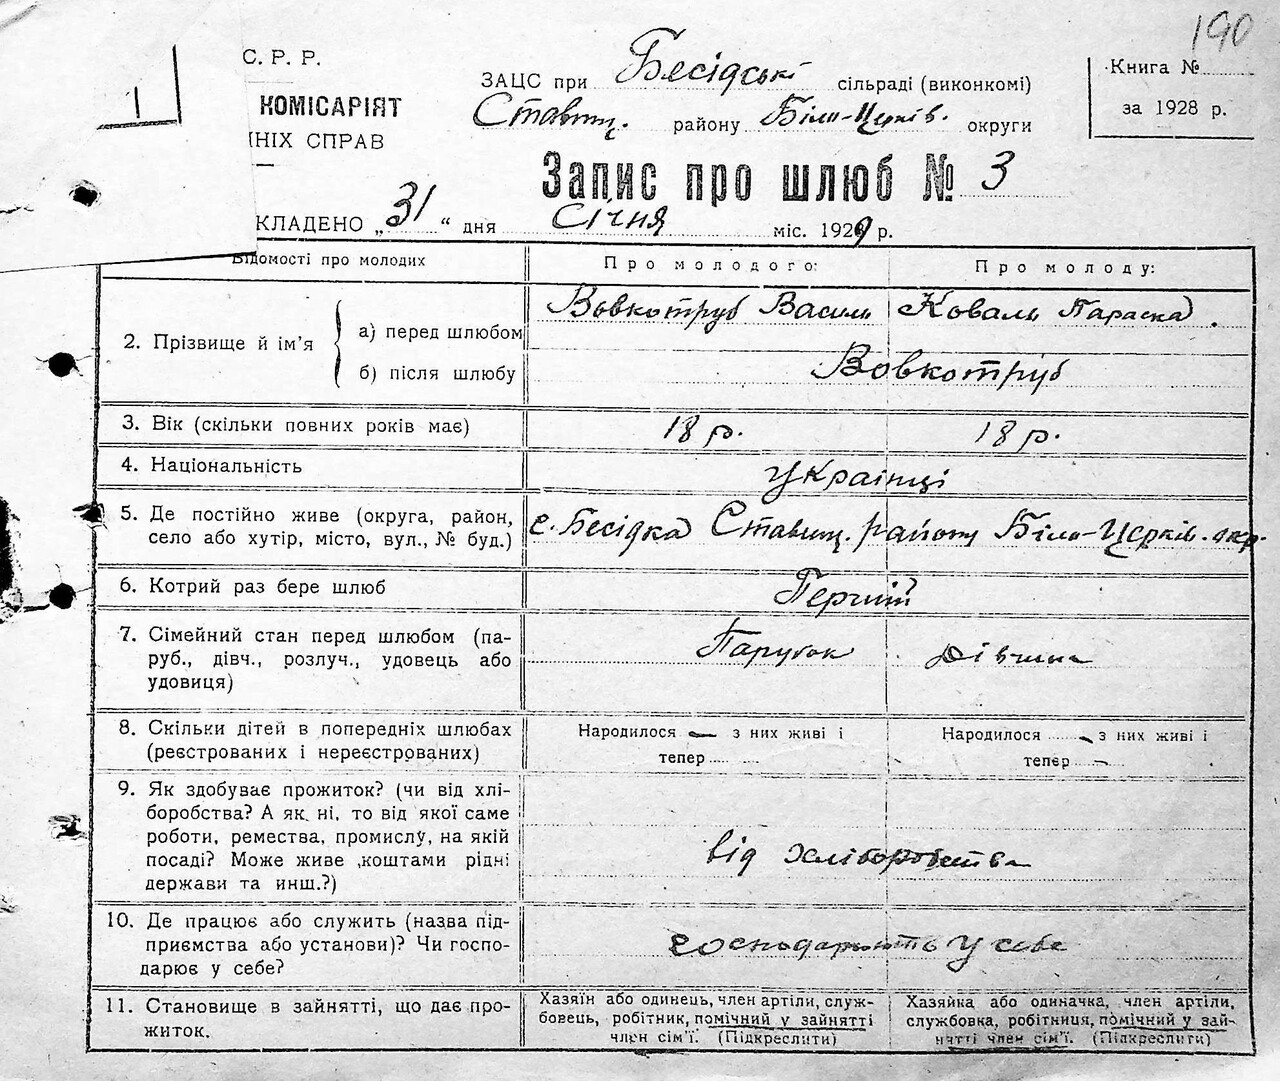 190
С. Р. Р.
КОМІСАРІЯТ
НІХ СПРАВ
ЗАЦС при Бесідські сільраді (виконкомі)
Ставищ. району Біло-Церків. округи
Книга №
за 1928 р.
Запис про шлюб № 3
КЛАДЕНО „31“ дня Січня міс. 1929 р.
Відомості про молодих
Про молодого:
Про молоду:
2. Прізвище й ім’я
а) перед шлюбом
Вовкотруб Василь
Коваль Параска.
б) після шлюбу
Вовкотруб
3. Вік (скільки повних років має)
18 р.
18 р.
4. Національність
Українці
5. Де постійно живе (округа, район,
село або хутір, місто, вул., № буд.)
с. Бесідка Ставищ. району Біло-Церків. окр.
6. Котрий раз бере шлюб
Перший
7. Сімейний стан перед шлюбом (па-
руб., дівч., розлуч., удовець або
удовиця)
Парубок
Дівчина
8. Скільки дітей в попередніх шлюбах
(реєстрованих і нереєстрованих)
Народилося — з них живі і
тепер
Народилося — з них живі і
тепер —
9. Як здобуває прожиток? (чи від хлі-
боробства? А як ні, то від якої саме
роботи, ремества, промислу, на якій
посаді? Може живе коштами рідні
держави та инш.?)
від хліборобства
10. Де працює або служить (назва під-
приємства або установи)? Чи госпо-
дарює у себе?
господарюють у себе
11. Становище в зайнятті, що дає про-
житок.
Хазяїн або одинець, член артіли, служ-
бовець, робітник, помічний у зайнятті
член сім’ї. (Підкреслити)
Хазяйка або одиначка, член артіли,
службовка, робітниця, помічний у зай-
нятті член сім’ї. (Підкреслити)